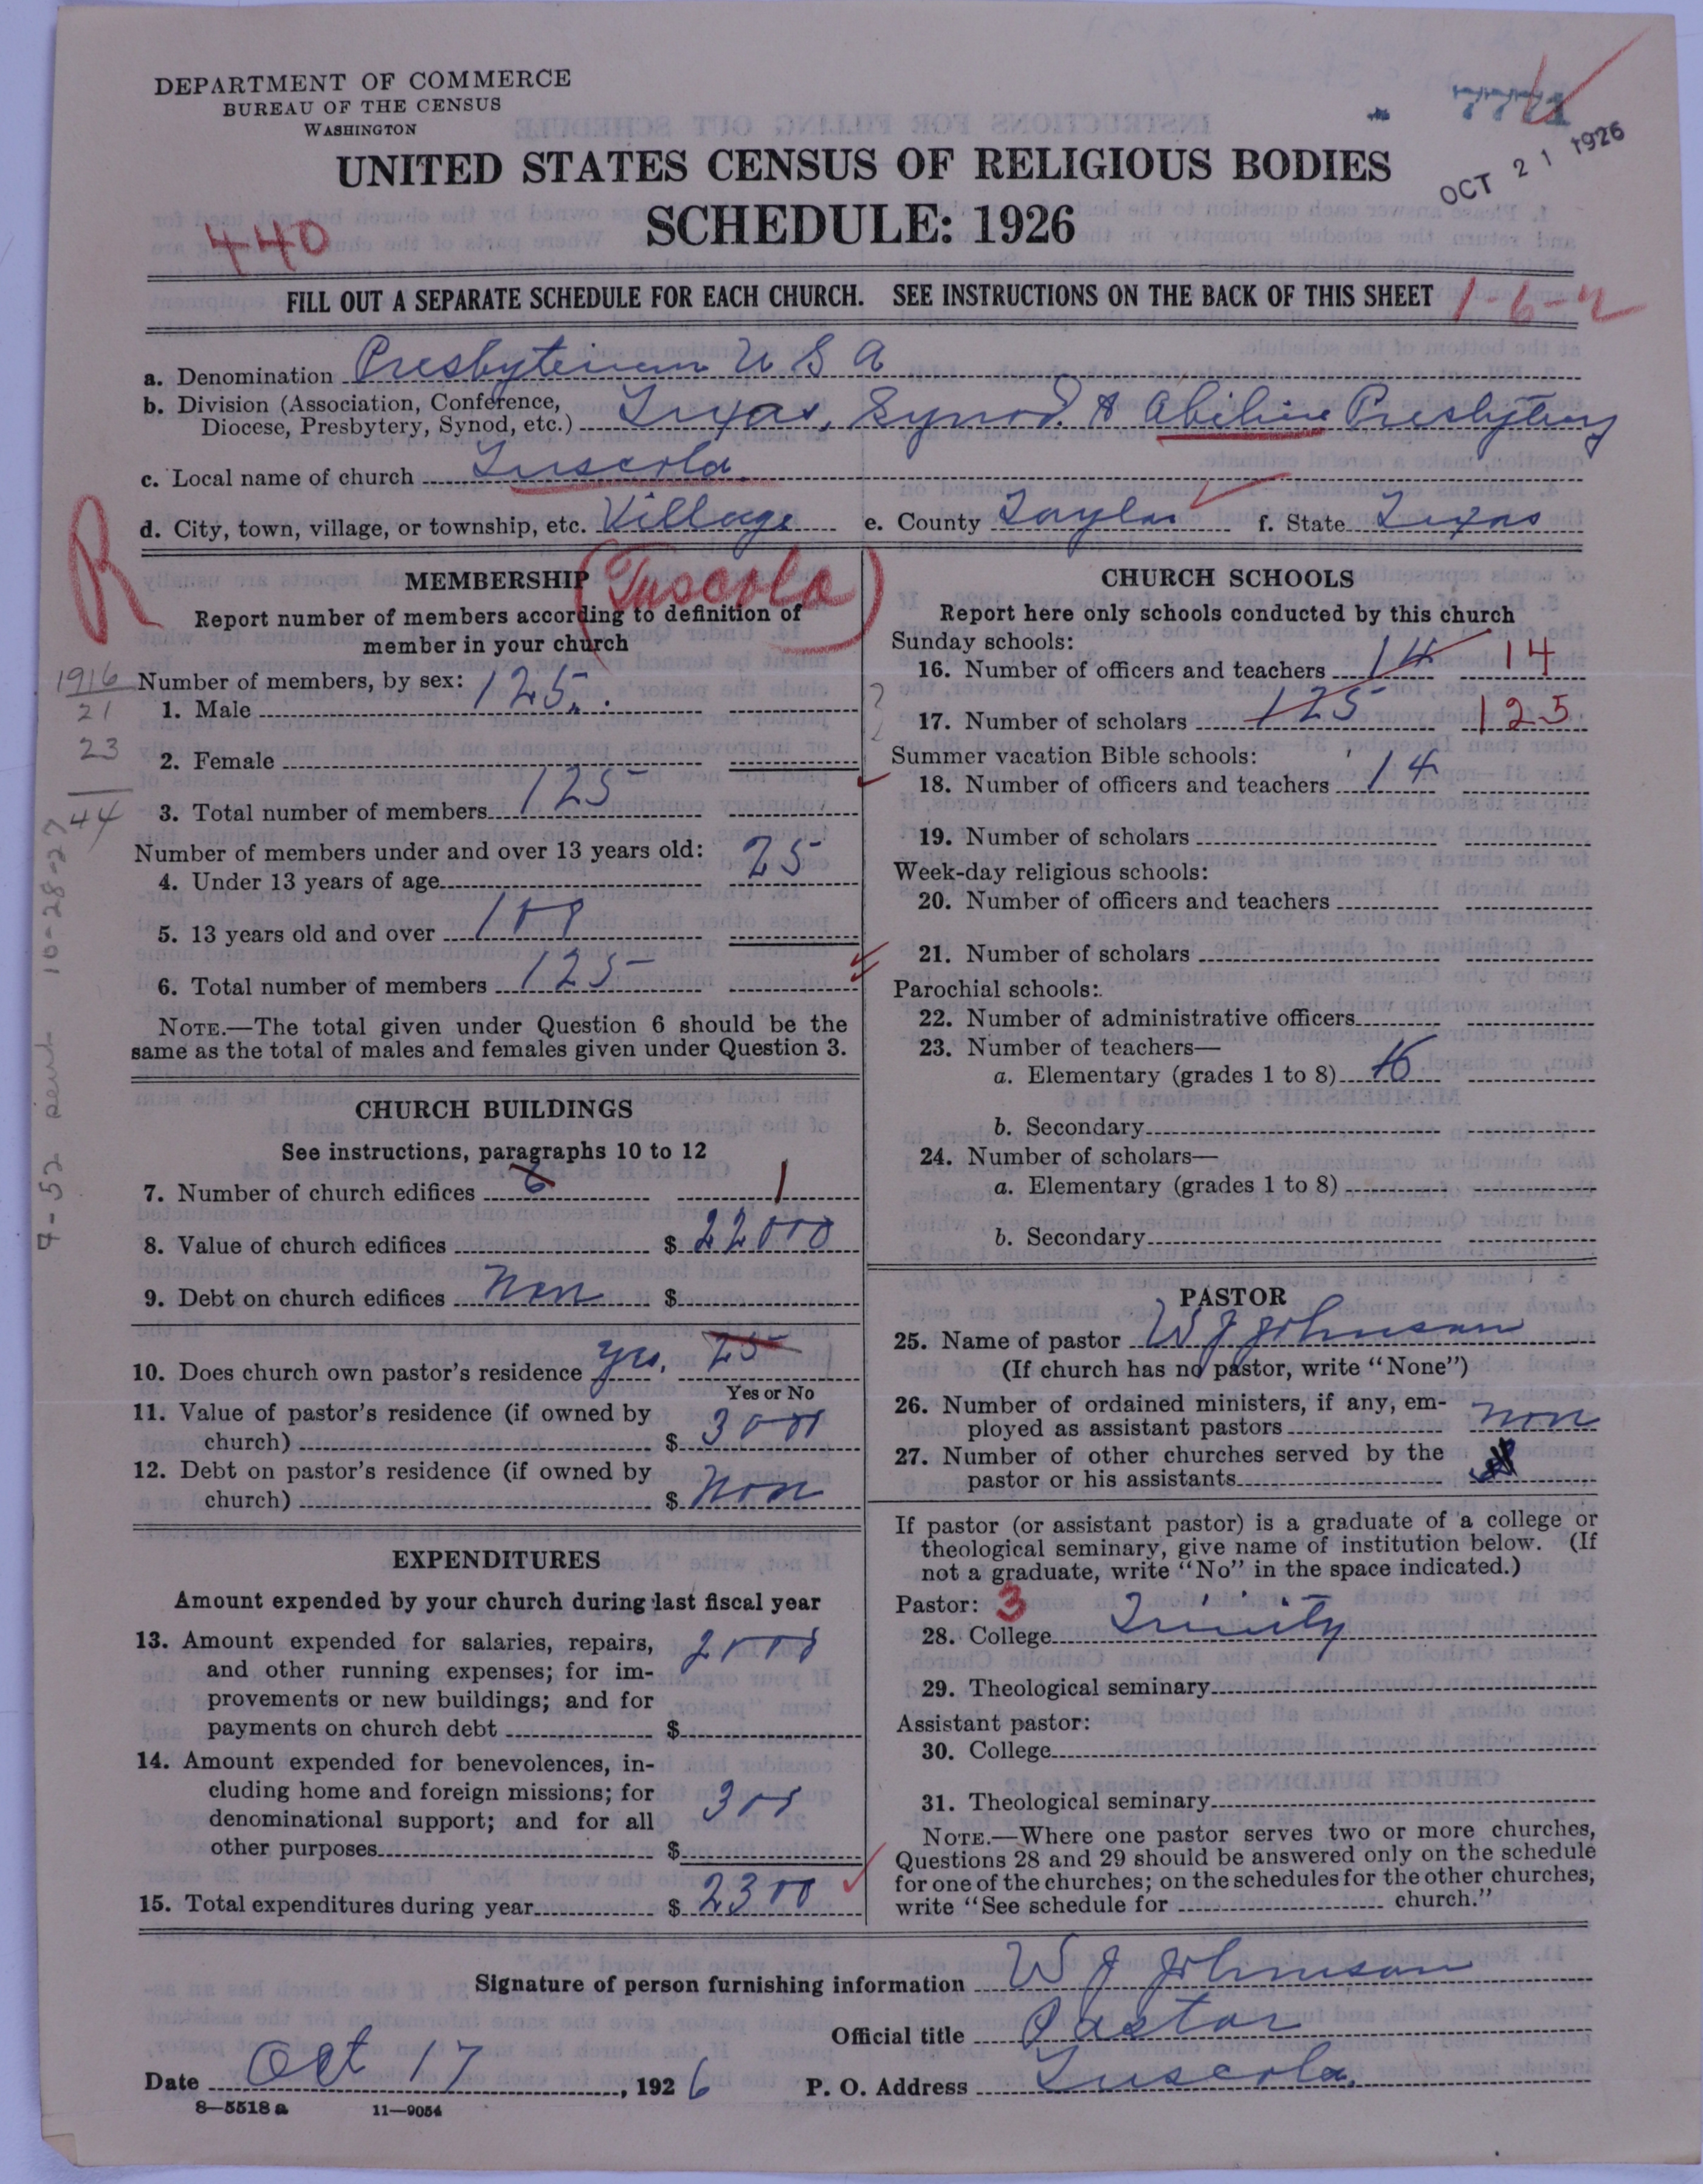 DEPARTMENT OF COMMERCE
BUREAU OF THE CENSUS
WASHINGTON
OCT 21 1926
UNITED STATES CENSUS OF RELIGIOUS BODIES
SCHEDULE: 1926
440
FILL OUT A SEPARATE SCHEDULE FOR EACH CHURCH. SEE INSTRUCTIONS ON THE BACK OF THIS SHEET
1-6-2
a. Denomination Presbyterian U S A
b. Division (Association, Conference,
Diocese, Presbytery, Synod, etc.) Texas, Synod. & Abiline Presbytery
c. Local name of church Tuscola
d. City, town, village, or township, etc. Village e. County Taylor f. State Texas
R
(Tuscola)
MEMBERSHIP
Report number of members according to definition of
member in your church
Number of members, by sex: 125.
1. Male
2. Female
1916
21
23
44
3. Total number of members 125
Number of members under and over 13 years old:
4. Under 13 years of age 25
5. 13 years old and over 100
6. Total number of members 125
NOTE.—The total given under Question 6 should be the
same as the total of males and females given under Question 3.
CHURCH BUILDINGS
See instructions, paragraphs 10 to 12
7. Number of church edifices 6 1
8. Value of church edifices $ 22000
9. Debt on church edifices Non $
10. Does church own pastor's residence yes, 25
Yes or No
11. Value of pastor's residence (if owned by
church) $ 3000
12. Debt on pastor's residence (if owned by
church) $ Non
EXPENDITURES
Amount expended by your church during last fiscal year
13. Amount expended for salaries, repairs, 2000
and other running expenses; for im-
provements or new buildings; and for
payments on church debt $
14. Amount expended for benevolences, in-
cluding home and foreign missions; for
denominational support; and for all 300
other purposes $
15. Total expenditures during year $ 2300
CHURCH SCHOOLS
Report here only schools conducted by this church
Sunday schools:
16. Number of officers and teachers 14 14
17. Number of scholars 125 125
Summer vacation Bible schools:
18. Number of officers and teachers 14
19. Number of scholars
Week-day religious schools:
20. Number of officers and teachers
21. Number of scholars
Parochial schools:
22. Number of administrative officers
23. Number of teachers—
a. Elementary (grades 1 to 8)
b. Secondary
24. Number of scholars—
a. Elementary (grades 1 to 8)
b. Secondary
PASTOR
25. Name of pastor W J Johnson
(If church has no pastor, write "None")
26. Number of ordained ministers, if any, em-
ployed as assistant pastors non
27. Number of other churches served by the
pastor or his assistants
If pastor (or assistant pastor) is a graduate of a college or
theological seminary, give name of institution below. (If
not a graduate, write "No" in the space indicated.)
Pastor: 3
28. College Trinity
29. Theological seminary
Assistant pastor:
30. College
31. Theological seminary
NOTE.—Where one pastor serves two or more churches,
Questions 28 and 29 should be answered only on the schedule
for one of the churches; on the schedules for the other churches,
write "See schedule for church."
Signature of person furnishing information W J Johnson
Official title Pastor
Date Oct 17, 1926 P. O. Address Tuscola.
8—5518 a 11—9054